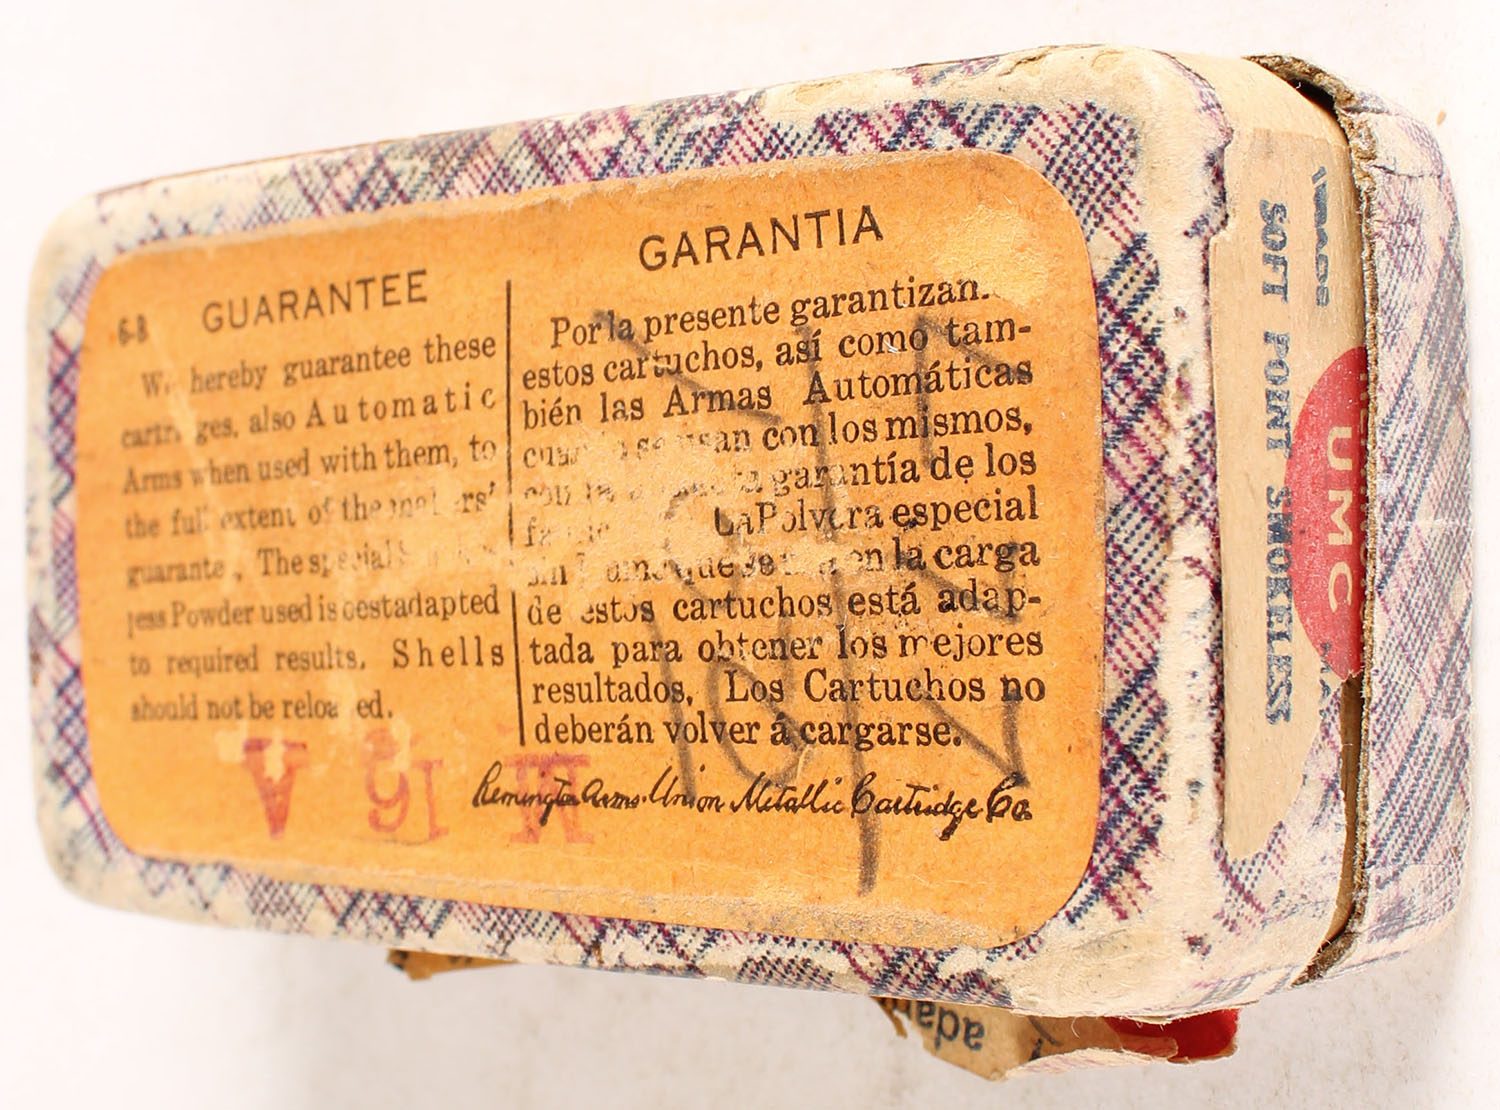 6-B
GUARANTEE
hereby guarantee these
also Automatic
Arms when used with them, to
the full extent of the
The special
Powder used is best adapted
to required results. Shells
should not be reloaded.
GARANTIA
Por la presente garantizan
estos cartuchos, así como tam-
bién las Armas Automáticas
usan con los mismos,
garantía de los
La Polvora especial
que en la carga
de estos cartuchos está adap-
tada para obtener los mejores
resultados. Los Cartuchos no
deberán volver á cargarse.
Remington Arms Union Metallic Cartridge Co.
M 16 A
SOFT POINT SMOKELESS
UMC